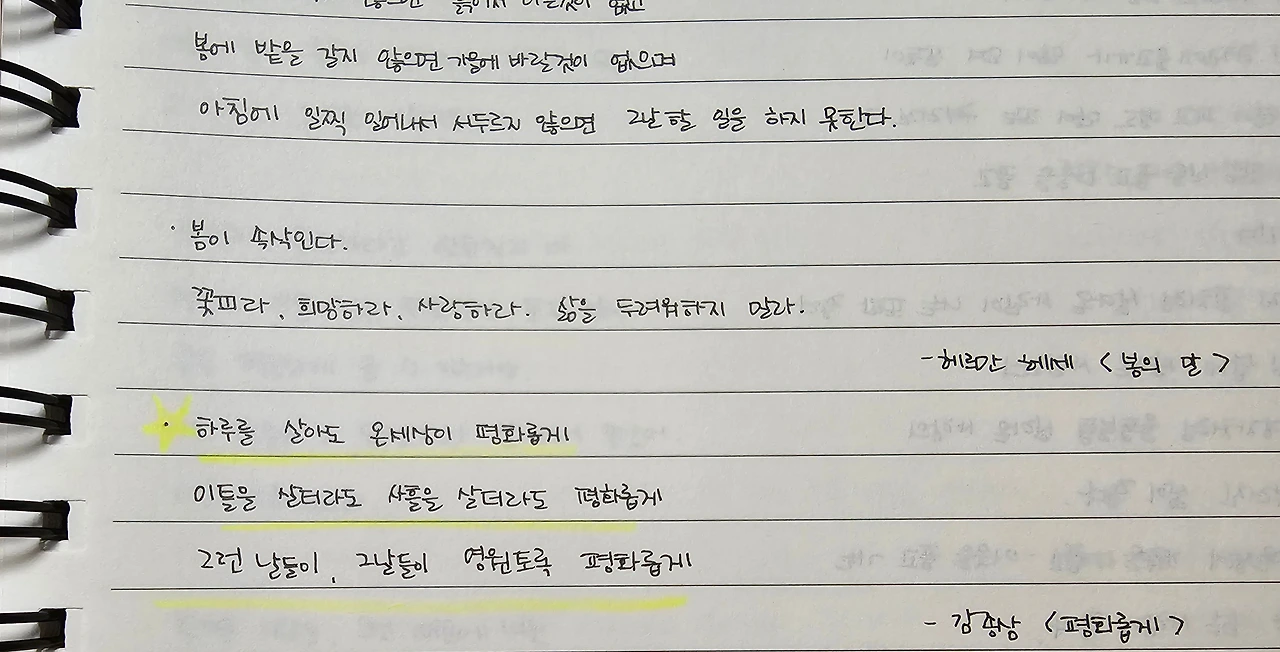 않으면 늙어서 아는것이 없고
봄에 밭을 갈지 않으면 가을에 바랄것이 없으며
아침에 일찍 일어나서 서두르지 않으면 그날 할 일을 하지 못한다.
· 봄이 속삭인다.
꽃피라, 희망하라, 사랑하라. 삶을 두려워하지 말라.
- 헤르만 헤세 < 봄의 말 >
· 하루를 살아도 온세상이 평화롭게
이틀을 살더라도 사흘을 살더라도 평화롭게
그런 날들이, 그날들이 영원토록 평화롭게
- 김종삼 <평화롭게>